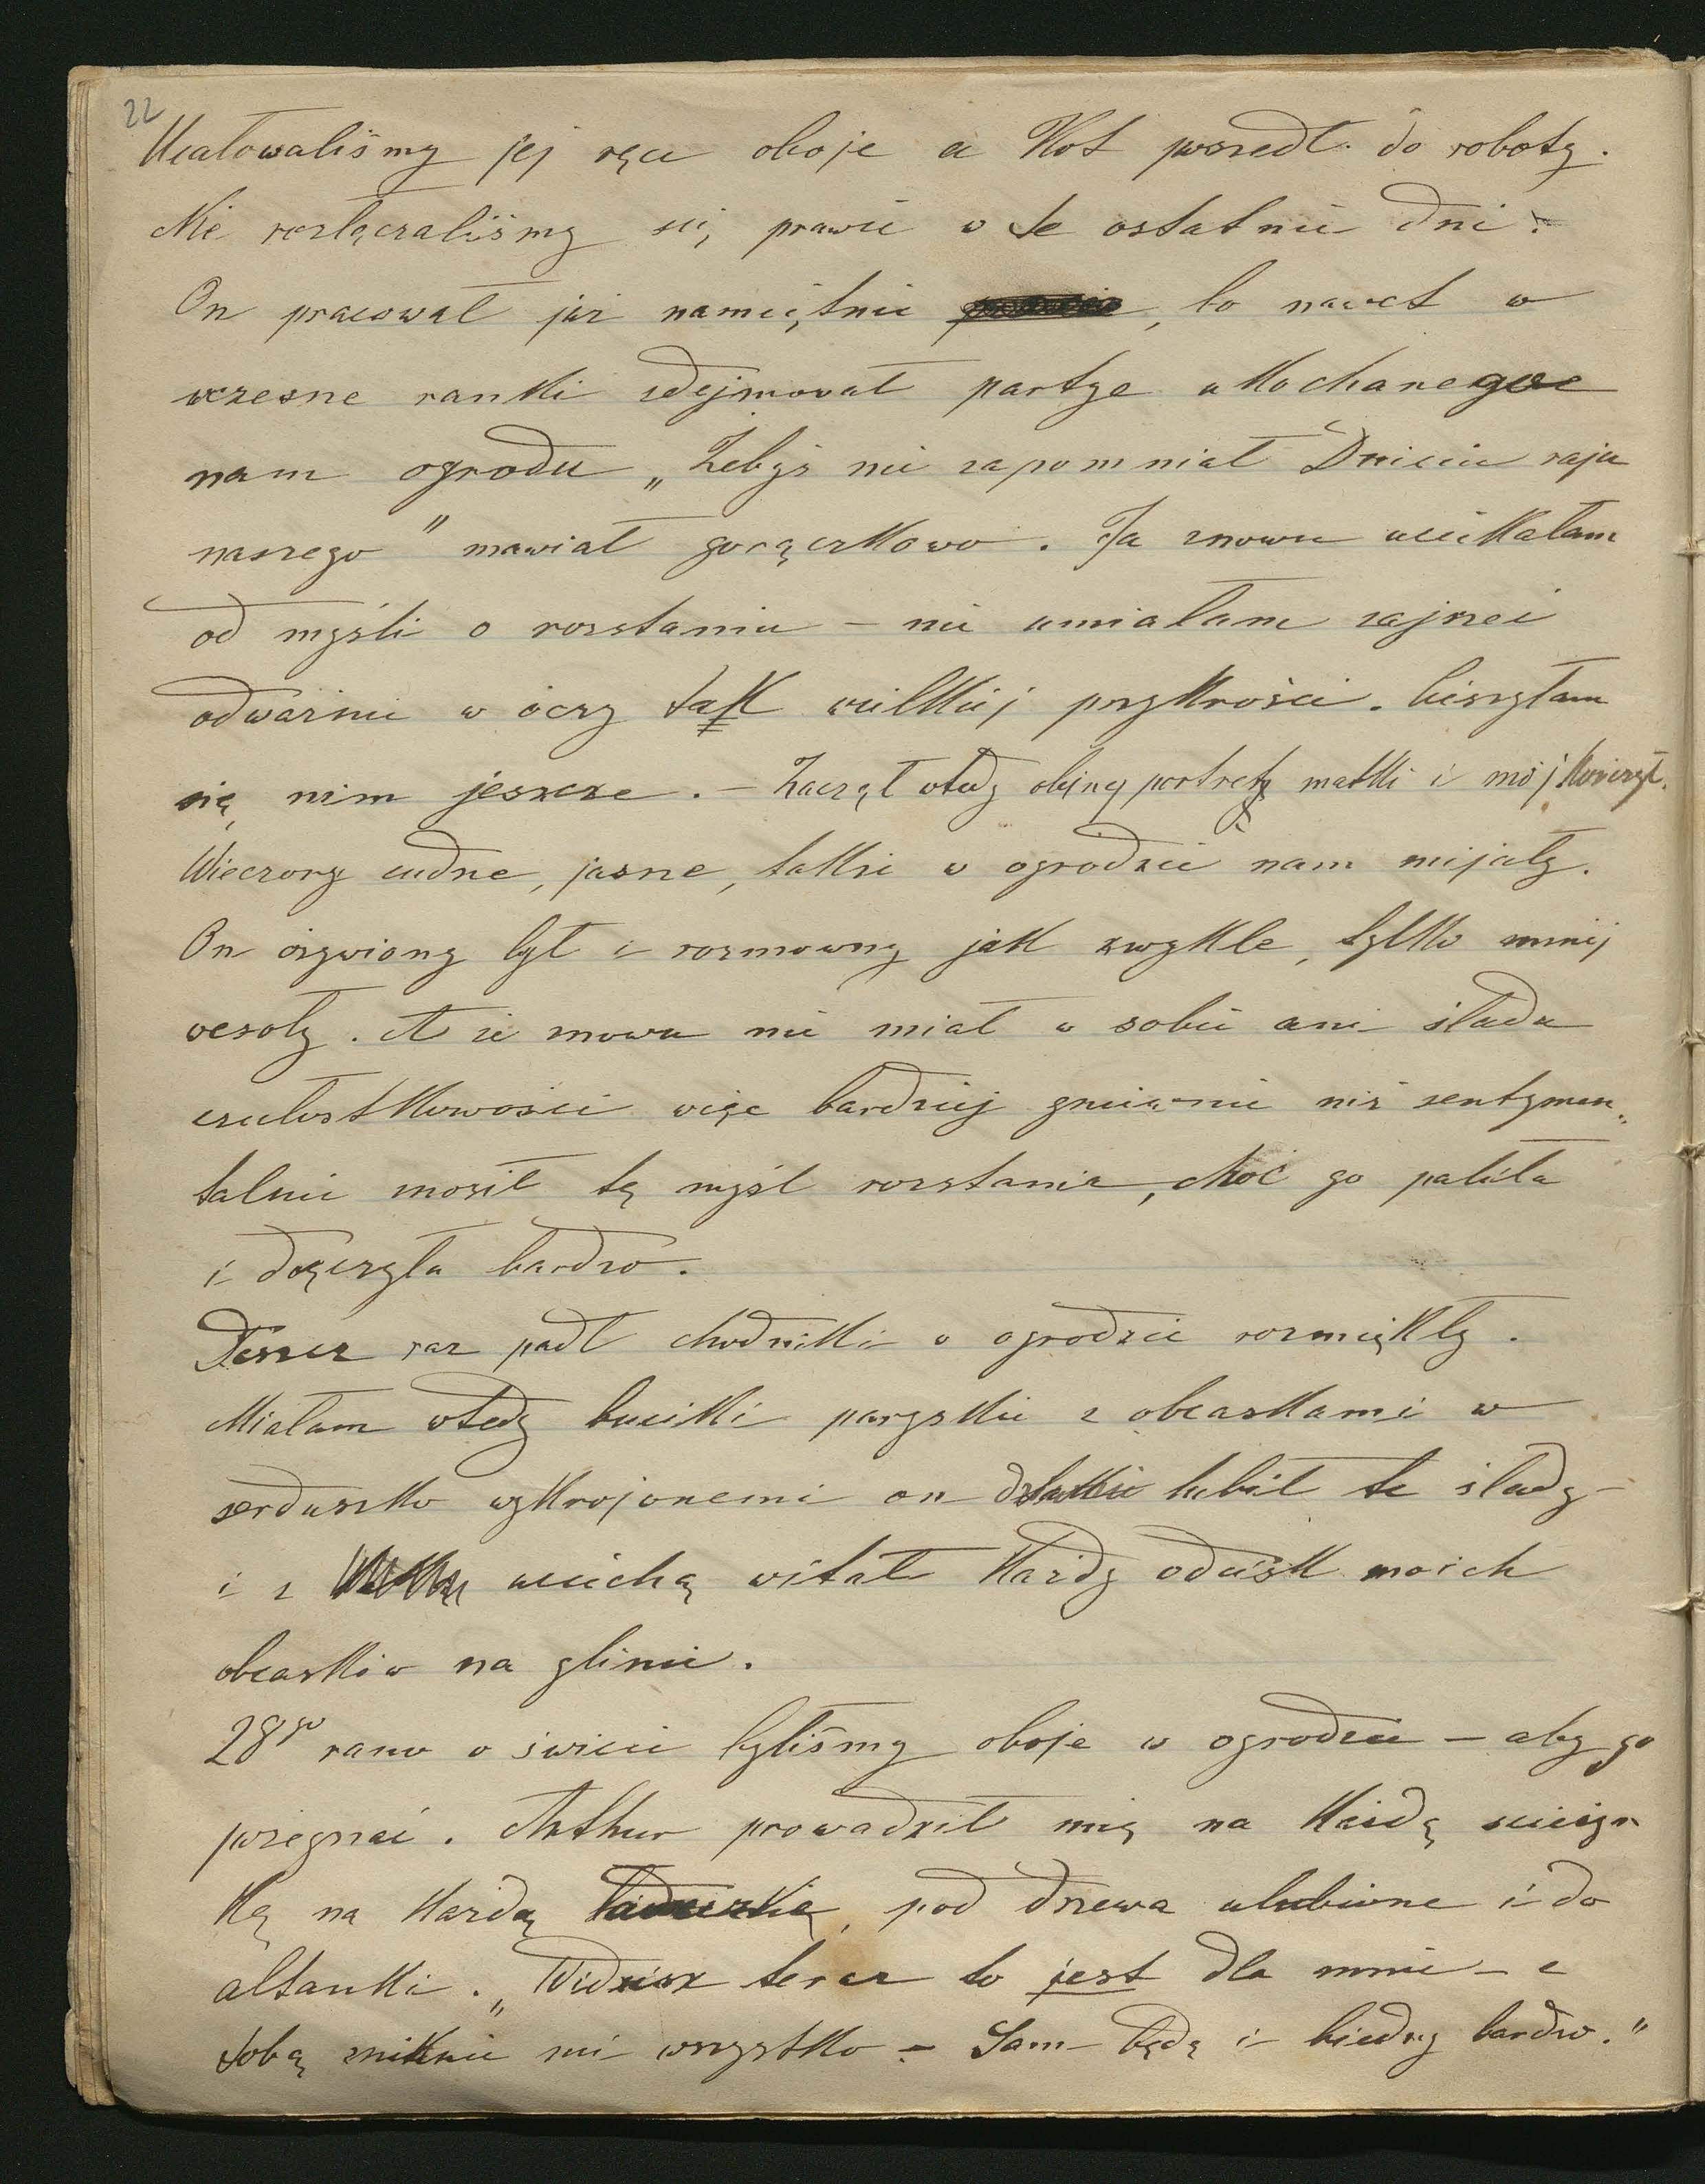 22
Ucałowaliśmy jej ręce oboje a Kot poszedł do roboty.
Nie rozłączaliśmy się prawie w te ostatnie dni.
On pracował już namiętnie, bo nawet w
wczesne ranki zdejmował partye ukochanego
nam ogrodu „Żebyś nie zapomniał Dziecię raju
naszego" mawiał gorączkowo. Ja znowu uciekałam
od myśli o rozstaniu – nie umiałam zajrzeć
odważnie w oczy tak wielkiej przykrości. Cieszyłam
się nim jeszcze. – Zaczął wtedy olejny portrety matki i mój kończył.
Wieczory cudne, jasne, także w ogrodzie nam mijały.
On ożywiony był i rozmowny jak zwykle, tylko mniej
wesoły. A że znowu nie miał w sobie ani śladu
czułostkowości więc bardziej gniewnie niż sentymen„
talnie znosił tę myśl rozstania, choć go paliła
i dręczyła bardzo.
Deszcz raz padł chodniki w ogrodzie rozmiękły.
Miałam wtedy buciki paryskie z obcaskami w
serduszko wykrojonemi on lubił te ślady –
i z uciechą witał każdy odcisk moich
obcasków na glinie.
28go rano o świcie byliśmy oboje w ogrodzie – aby go
pożegnać. Arthur prowadził mię na każdą ścieżn
kę na każdą ławeczkę, pod drzewa ulubione i do
altanki. „Widzisz teraz to jest dla mnie – z
tobą zniknie mi wszystko – Sam będę i biedny bardzo."